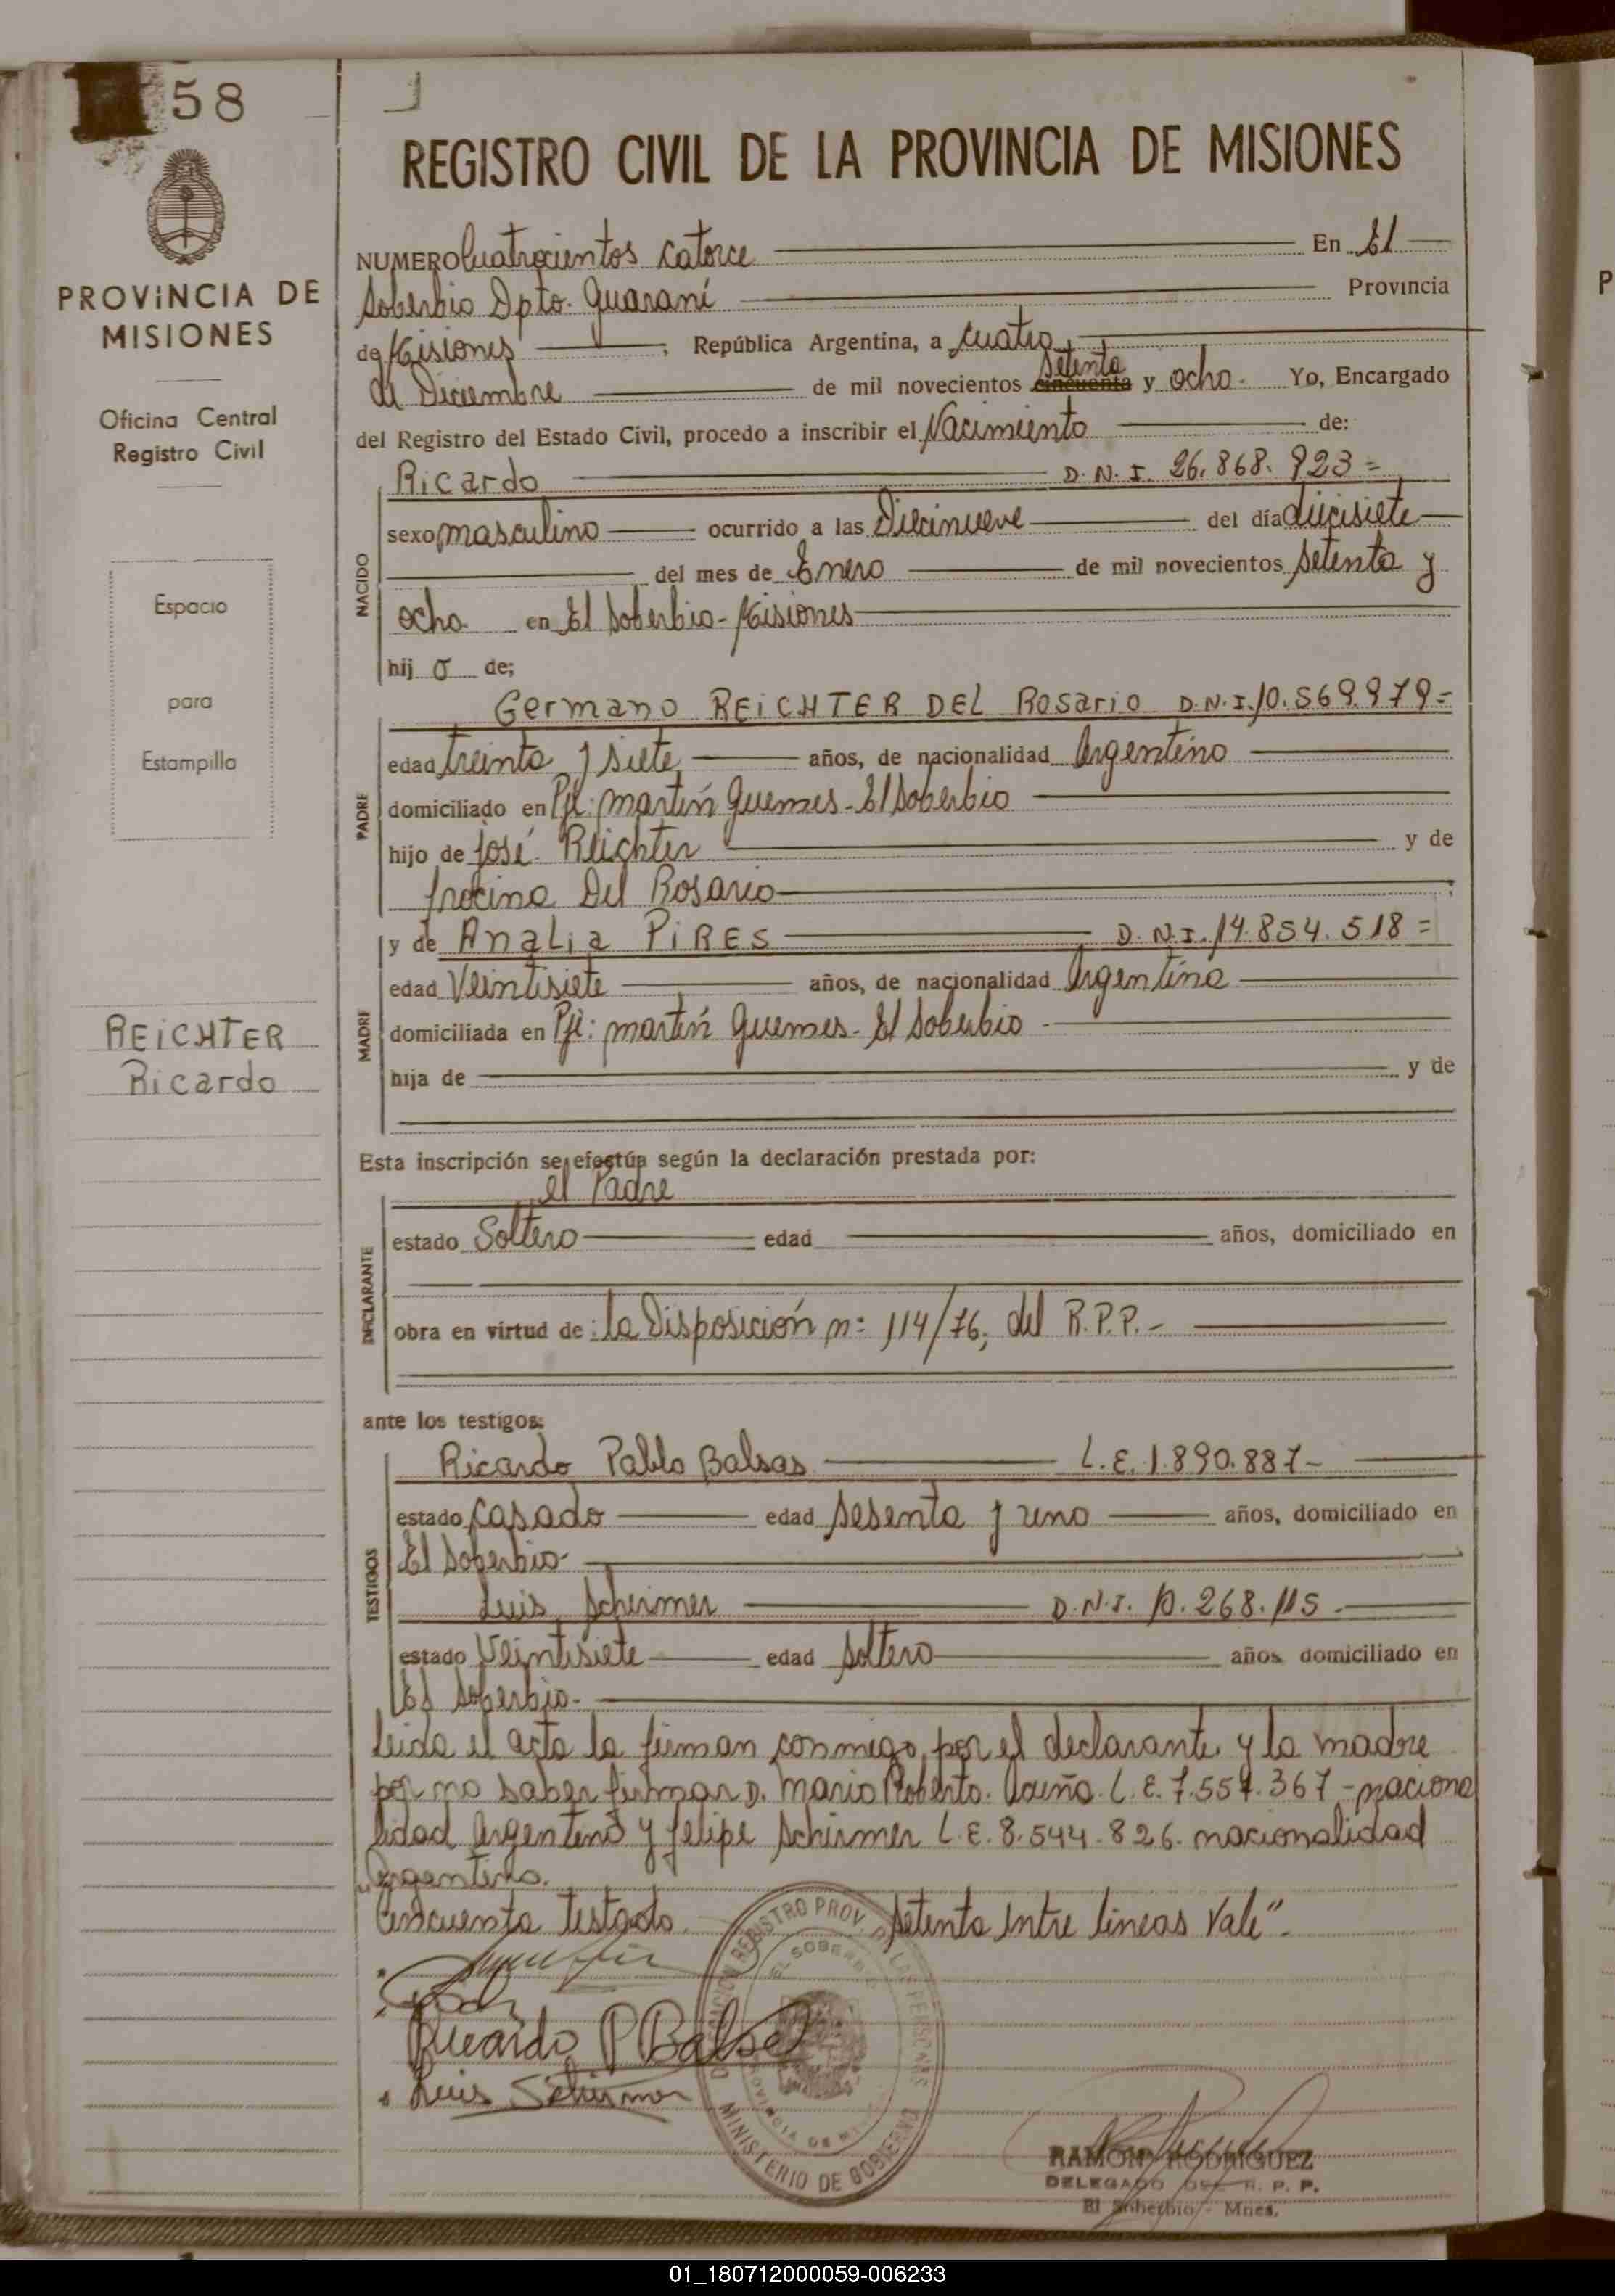 58
PROVINCIA DE
MISIONES
Oficina Central
Registro Civil
Espacio
para
Estampilla
REICHTER
Ricardo
REGISTRO CIVIL DE LA PROVINCIA DE MISIONES
NUMERO Cuatrocientos catorce En El
Soberbio Dpto. Guaraní Provincia
de Misiones, República Argentina, a cuatro
de Diciembre de mil novecientos cincuenta setenta y ocho. Yo, Encargado
del Registro del Estado Civil, procedo a inscribir el Nacimiento de:
NACIDO
Ricardo D.N.I. 26.868.923=
sexo masculino ocurrido a las Diecinueve del día diecisiete
del mes de Enero de mil novecientos setenta y
ocho en El Soberbio - Misiones
hij o de;
PADRE
Germano REICHTER DEL Rosario D.N.I. 10.569.979=
edad treinta y siete años, de nacionalidad Argentino
domiciliado en Pje: martín Guemes - El Soberbio
hijo de José Reichter y de
Del Rosario
MADRE
y de Analia PIRES D.N.I. 14.854.518=
edad Veintisiete años, de nacionalidad Argentina
domiciliada en Pje: martín Guemes - El Soberbio
hija de y de
Esta inscripción se efectúa según la declaración prestada por:
DECLARANTE
el Padre
estado Soltero edad años, domiciliado en
obra en virtud de: la Disposición n: 114/76, del R.P.P.-
ante los testigos:
TESTIGOS
Ricardo Pablo Balsas L.E. 1.890.887-
estado casado edad sesenta y uno años, domiciliado en
El Soberbio-
Luis Schirmer D.N.I. 10.268.115.
estado Veintisiete edad soltero años domiciliado en
El Soberbio.-
leida el acta la firman conmigo, por el declarante y la madre
por no saber firmar D. Mario Roberto Acuña L.E. 7.557.367 - naciona
lidad Argentino y Felipe Schirmer L.E. 8.544.826. nacionalidad
Argentino.
"Cincuenta testado. setenta entre lineas Vale".
Ricardo P Balsa
Luis Schirmer
REGISTRO PROV. DE LAS PERSONAS
EL SOBERBIO
PROVINCIA DE
MINISTERIO DE GOBIERNO
RAMON RODRIGUEZ
DELEGADO DEL R. P. P.
El Soberbio - Mnes.
P
01_180712000059-006233